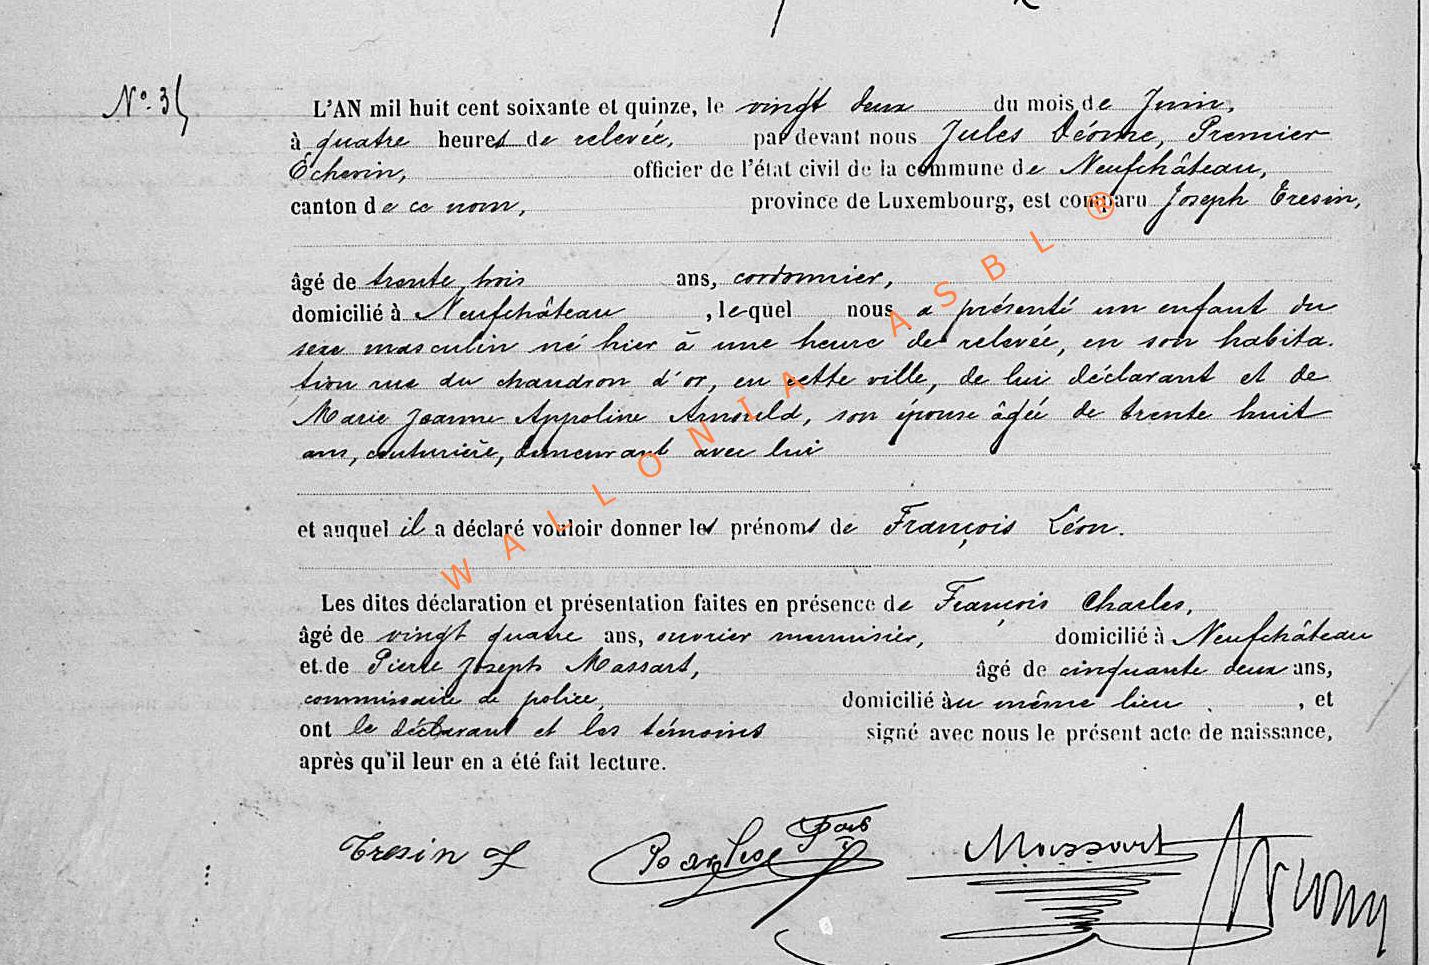 N° 35
L'AN mil huit cent soixante et quinze, le vingt deux du mois de Juin,
à quatre heures de relevée, par devant nous Jules Déome, Premier
Echevin, officier de l'état civil de la commune de Neufchâteau,
canton de ce nom, province de Luxembourg, est comparu Joseph Tresin,
âgé de trente trois ans, cordonnier,
domicilié à Neufchâteau, lequel nous a présenté un enfant du
sexe masculin né hier à une heure de relevée, en son habita-
tion rue du chaudron d'or, en cette ville, de lui déclarant et de
Marie Jeanne Appoline Arnould, son épouse âgée de trente huit
ans, couturière, demeurant avec lui
et auquel il a déclaré vouloir donner les prénoms de François Léon.
Les dites déclaration et présentation faites en présence de François Charles,
âgé de vingt quatre ans, ouvrier menuisier, domicilié à Neufchâteau
et de Pierre Joseph Massart, âgé de cinquante deux ans,
commissaire de police, domicilié au même lieu, et
ont le déclarant et les témoins signé avec nous le présent acte de naissance,
après qu'il leur en a été fait lecture.
Tresin J
Massart
WALLONIA ASBL ®